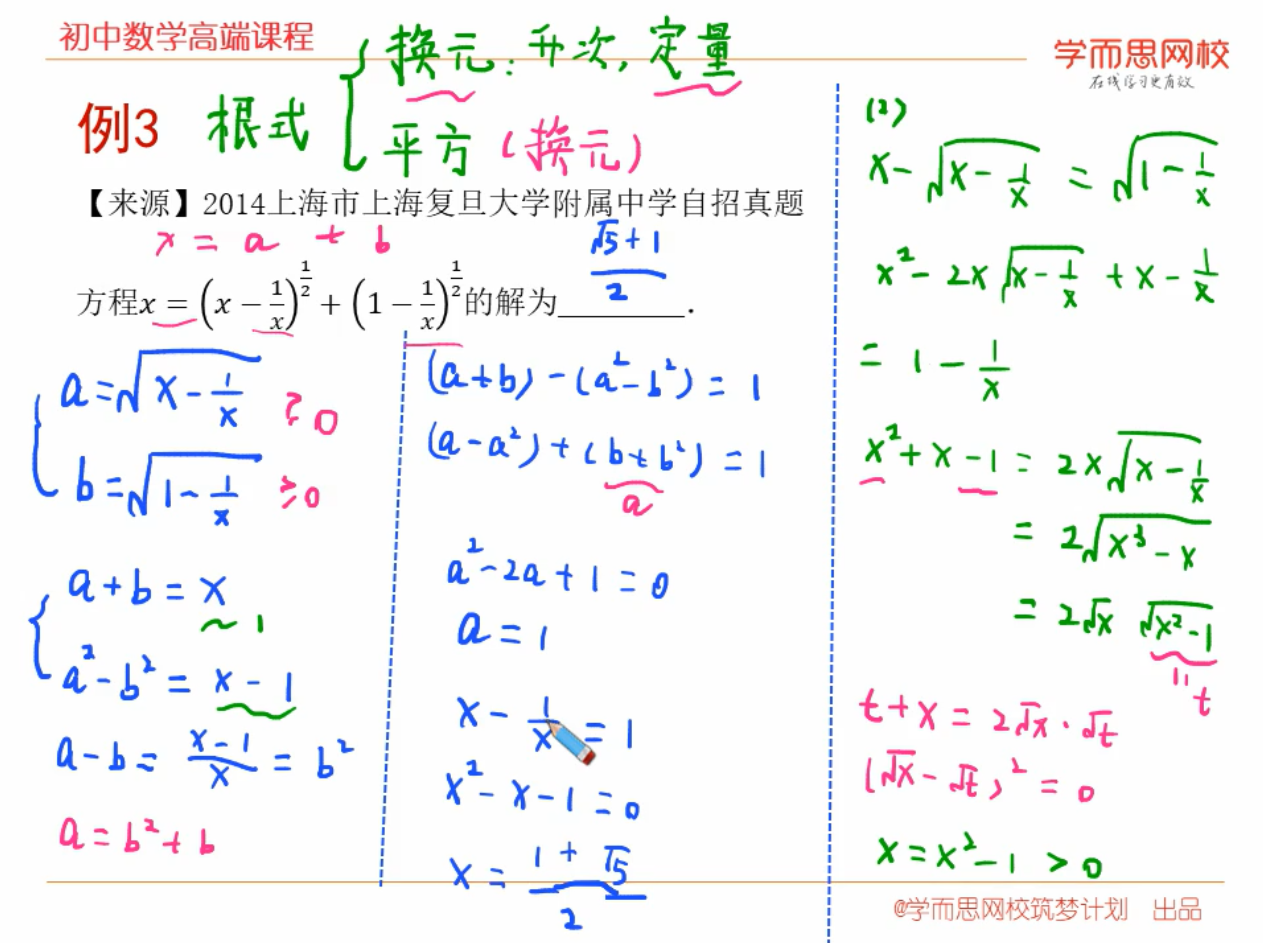 初中数学高端课程
学而思网校
在线学习更有效
例3 根式
换元: 升次, 定量
平方 (换元)
【来源】2014上海市上海复旦大学附属中学自招真题
x = a + b
方程x = (x − 1/x)^(1/2) + (1 − 1/x)^(1/2)的解为________.
(√5 + 1)/2
a = √(x − 1/x) ≥ 0
b = √(1 − 1/x) ≥ 0
a + b = x
~ 1
a² − b² = x − 1
a − b = (x − 1)/x = b²
a = b² + b
(a + b) − (a² − b²) = 1
(a − a²) + (b + b²) = 1
a
a² − 2a + 1 = 0
a = 1
x − 1/x = 1
x² − x − 1 = 0
x = (1 + √5)/2
(2)
x − √(x − 1/x) = √(1 − 1/x)
x² − 2x√(x − 1/x) + x − 1/x
= 1 − 1/x
x² + x − 1 = 2x√(x − 1/x)
= 2√(x³ − x)
= 2√x √(x² − 1)
t
t + x = 2√x · √t
(√x − √t)² = 0
x = x² − 1 > 0
@学而思网校筑梦计划 出品